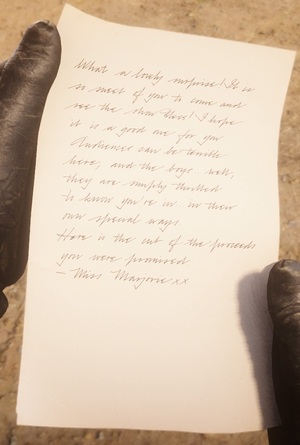 What a lovely surprise! It is
so sweet of you to come and
see the show then! I hope
it is a good one for you
Audiences can be terrible
here, and the boys, well,
they are simply thrilled
to know you're in in their
own special ways
Here is the cut of the proceeds
you were promised
- Miss Marjorie xx